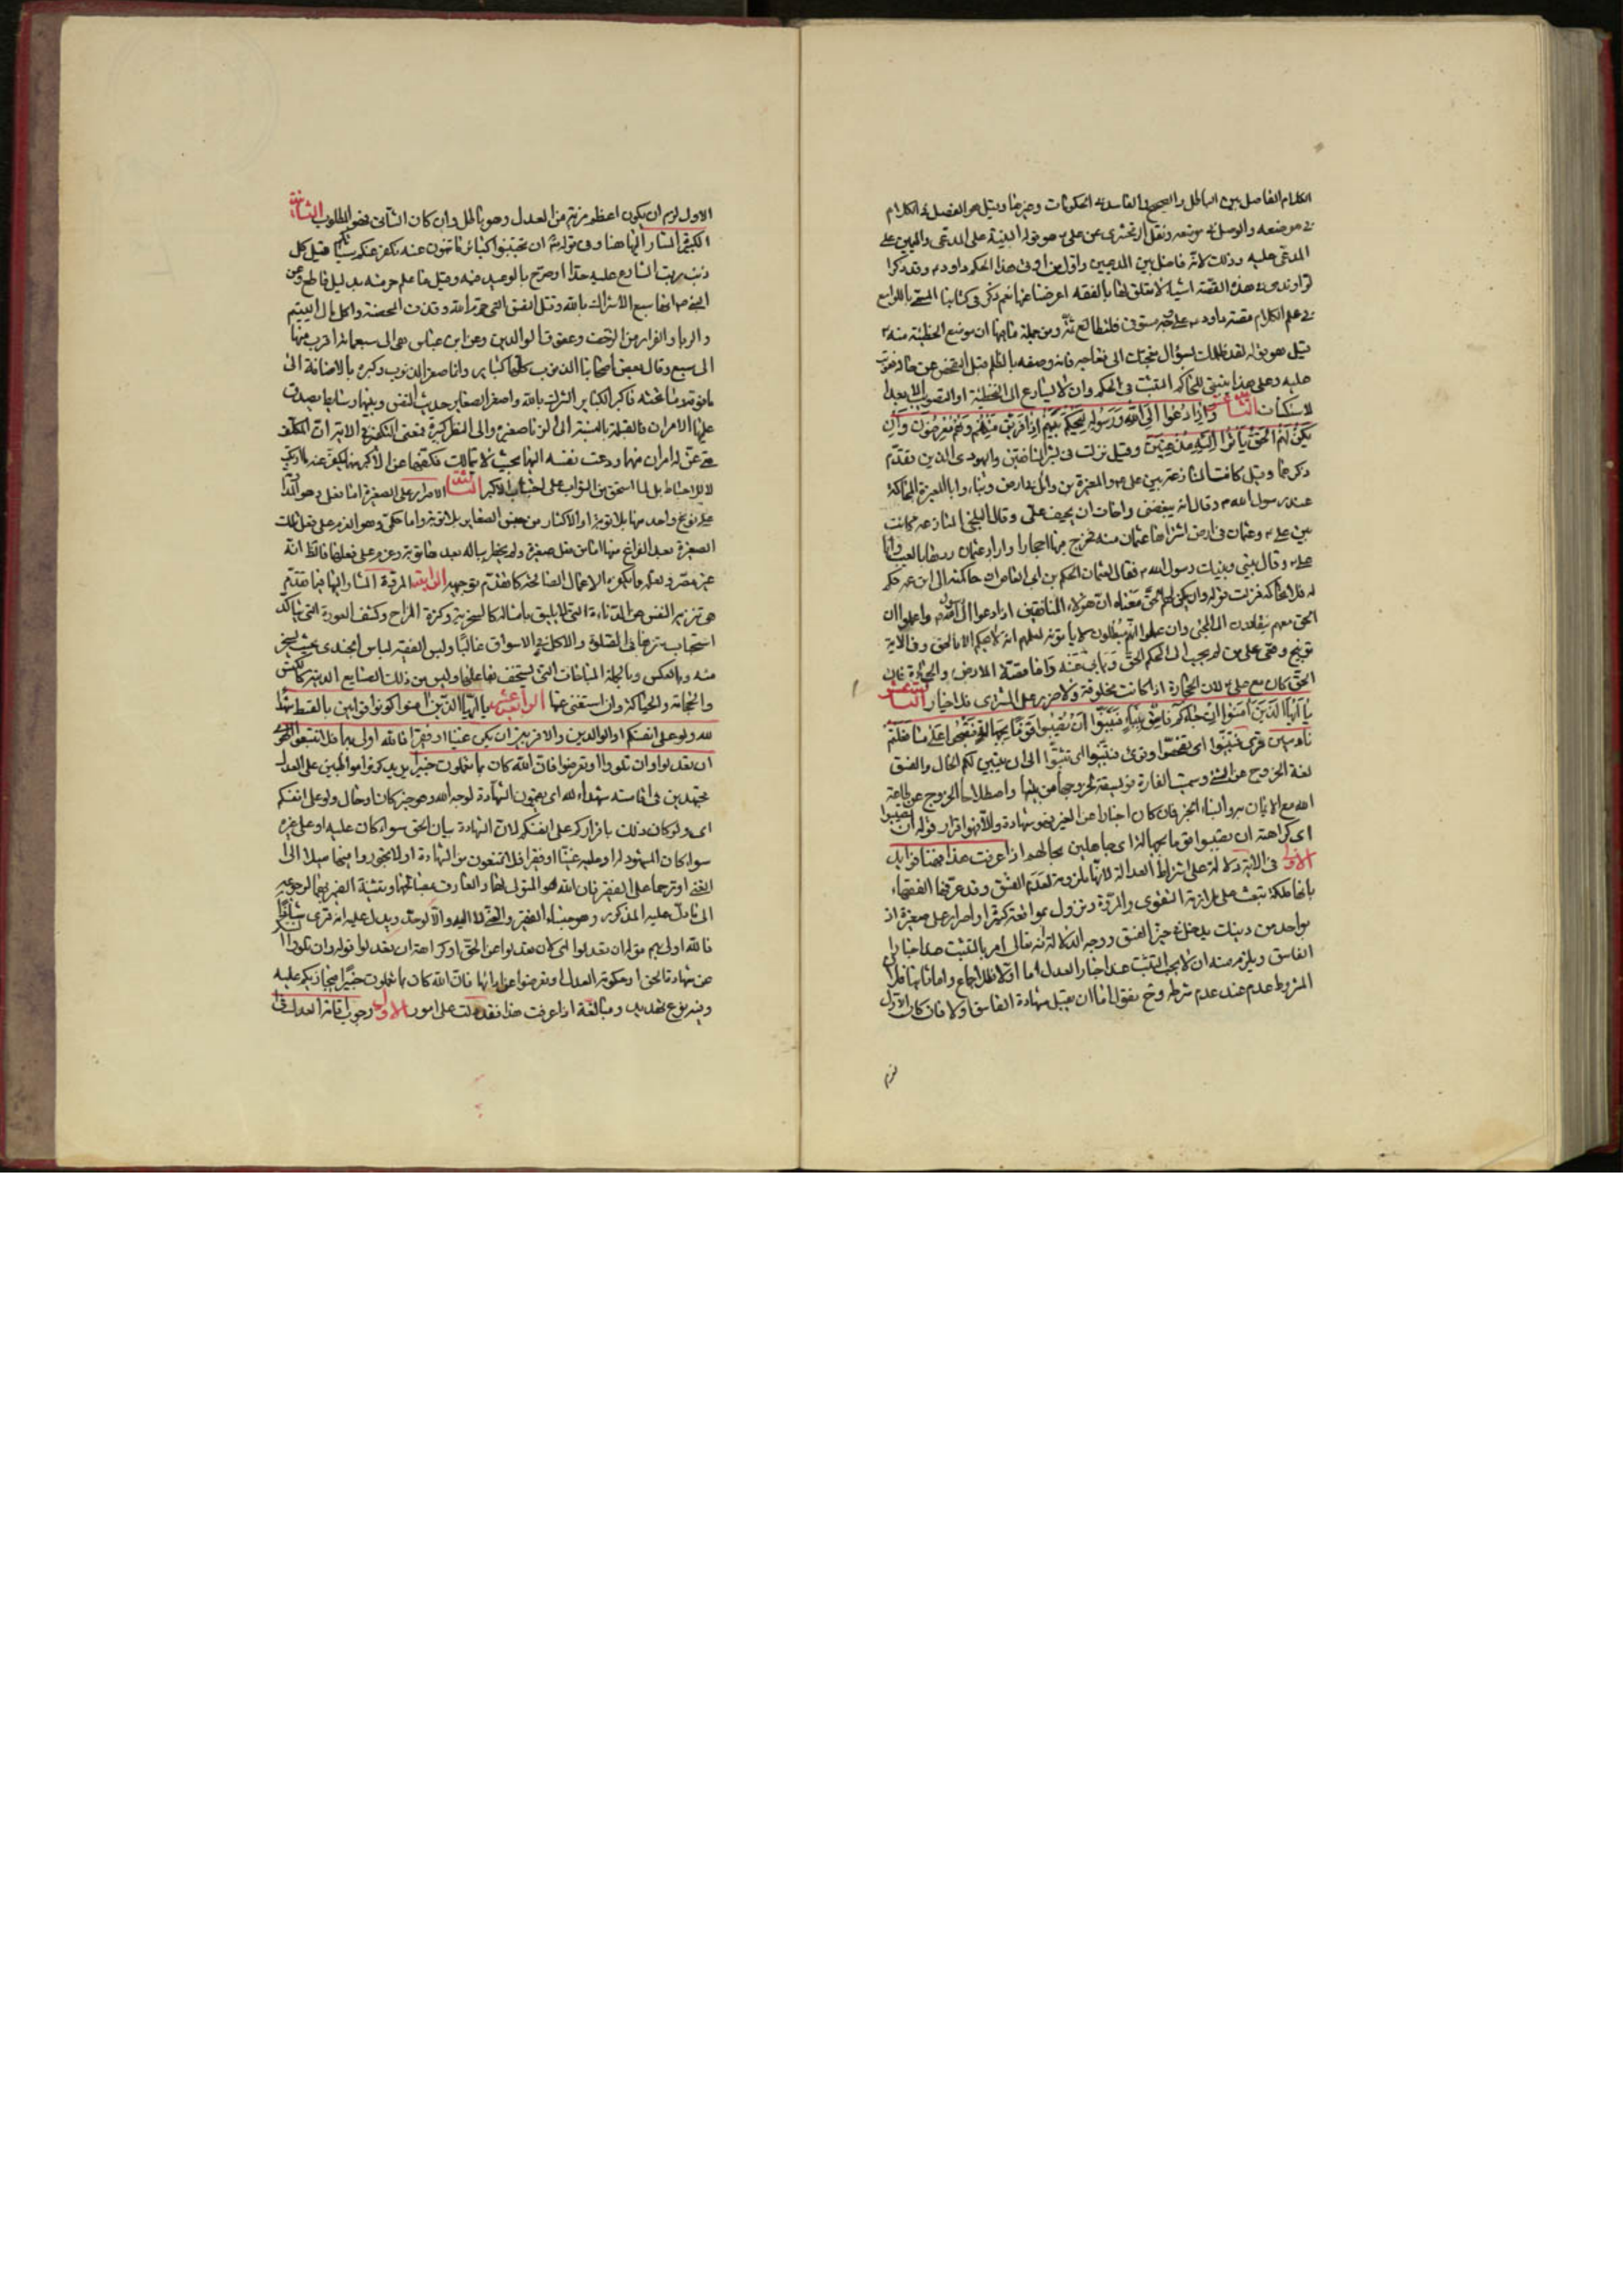 الكلام الفاصل بين الباطل والصحيح والفاسد في الحكومات وغيرها وقيل هو الفصل في الكلام
في موضعه والوصل في موضعه ونقل الزمخشري عن علي هو قوله البينة على المدعي واليمين على
المدعى عليه وذلك لأنه فاصل بين المدعيين واول من اوتي هذا الحكم داود وقد ذكر
الراوندي في هذه القصة اشياء لا تتعلق لها بالفقه اعرضنا عنها نعم ذكر في كتابنا المسمى باللوامع
في علم الكلام قصة داود على وجه مستوفى فليطالع ثمة ومن جملة ما فيها ان موضع الخطيئة منه
قيل هو قوله لقد ظلمك بسؤال نعجتك الى نعاجه فانه وصفه بالظلم قبل الفحص عن حال دعوى
عليه وعلى هذا ينبغي للحاكم التثبت في الحكم وان لا يسارع الى التخطئة او التصويب الا بعد
الاستكشاف واذا دعوا الى الله ورسوله ليحكم بينهم اذا فريق منهم معرضون وان
يكن لهم الحق يأتوا اليه مذعنين وقيل نزلت في بشر المنافق واليهودي الذين تقدم
ذكرهما وقيل كانت المنازعة بين علي والمغيرة بن وائل بارض وبناء وابا المغيرة المحاكمة
عند رسول الله وقال انه يبغضني واخاف ان يحيف علي وقال البلخي المنازعة كانت
بين علي وعثمان في ارض اشتراها عثمان منه فخرج فيها احجار واراد عثمان ردها بالعيب وابا
علي وقال بيني وبينك رسول الله فقال لعثمان الحكم بن ابي العاص ان حاكمته الى ابن عمه حكم
له فلا تحاكمه فنزلت قوله وان يكن لهم الحق معناه ان هؤلاء المنافقين اذا دعوا الى رسول الله واعلموا ان
الحق معهم ينقادون الى المجيء وان علموا انهم مبطلون لا يأتونه لعلمهم انه لا يحكم الا بالحق وفي الآية
توبيخ وفي على من لم يجب الى الحكم الحق واما قصة الارض والحجارة فان
الحق كان مع علي لان الحجارة اذا كانت مخلوقة ولا ضرر على المشتري فلا خيار
يا ايها الذين آمنوا ان جاءكم فاسق بنبإ فتبينوا ان تصيبوا قوما بجهالة فتصبحوا على ما فعلتم
نادمين قرئ فتبينوا اي تفحصوا وقرئ فتثبتوا اي تثبتوا الى ان يتبين لكم الحال والفسق
لغة الخروج عن الشيء وسميت الفارة فويسقة لخروجها من بيتها واصطلاحا الخروج عن طاعة
الله مع الايمان به والنبأ الخبر فان كان اخبارا عن الغير فهو شهادة والا فهو اقرار قوله ان تصيبوا
اي كراهة ان تصيبوا قوما بجهالة اي جاهلين بحالهم اذا عرفت هذا فهنا فوايد
الاولى في الآية دلالة على اشتراط العدالة لانها ملزومة لعدم الفسق وقد عرفها الفقهاء
بانها ملكة تبعث على ملازمة التقوى والمروة وتزول بمواقعة كبيرة او اصرار على صغيرة اذ
بواحد من ذينك يدخل في حيز الفسق ووجه الدلالة انه تعالى امر بالتثبت عند اخبار
الفاسق ويلزم منه ان لا يجب التثبت عند اخبار العدل اما اولا فللاجماع واما ثانيا فلان
المشروط عدم عند عدم شرطه وح نقول اما ان يقبل شهادة الفاسق اولا فان كان الاول
لزم
الاول لزم ان يكون اعظم مزية من العدل وهو باطل وان كان الثاني فهو المطلوب الثانية
الكبيرة المشار اليها هنا وفي قوله ان تجتنبوا كبائر ما تنهون عنه نكفر عنكم سيئاتكم قيل كل
ذنب رتب الشارع عليه حدا او صرح بالوعيد فيه وقيل ما علم حرمته بدليل قاطع وعن
النبي ص انها سبع الاشراك بالله وقتل النفس التي حرم الله وقذف المحصنة واكل مال اليتيم
والربا والفرار من الزحف وعقوق الوالدين وعن ابن عباس هي الى سبعمائة اقرب منها
الى سبع وقال بعض اصحابنا الذنوب كلها كبائر وانما صغر الذنوب وكبره بالاضافة الى
ما فوقه وما تحته فاكبر الكبائر الشرك بالله واصغر الصغاير حديث النفس وبينهما وسائط يصدق
عليها الامران فالقبلة بالنسبة الى الزنا صغيرة والى النظر كبيرة فمعنى التكفير في الاية ان المكلف
متى عن له امران منهما ودعت نفسه اليها بحيث لا يتمالك فكفها عن الاكبر منهما كفر عنه ما ارتكبه
لا للاحباط بل لما استحق من الثواب على اجتناب الاكبر الثالثة الاصرار على الصغيرة اما فعلي وهو المداومة
على نوع واحد منها بلا توبة او الاكثار من جنس الصغاير بلا توبة واما حكمي وهو العزم على فعل تلك
الصغيرة بعد الفراغ منها اما من فعل صغيرة ولم يخطر بباله بعدها توبة وعزم على فعلها فالظ انه
غير مصر ولعله مما يكفره الاعمال الصالحة كما تقدم توجيهه الرابعة المروة المشار اليها فيما تقدم
هي تنزيه النفس عن الدناءة التي لا يليق بامثاله كالسخرية وكثرة المزاح وكشف العورة التي يتأكد
استحباب سترها في الصلوة والاكل في الاسواق غالبا ولبس الفقيه لباس الجندي بحيث يسخر
منه وبالعكس وبالجملة المباحات التي يستخف فاعلها وليس من ذلك الصنايع الدنية كالكنس
والحجامة والحياكة وان استغنى عنها الرابعة عشر يا ايها الذين آمنوا كونوا قوامين بالقسط شهداء
لله ولو على انفسكم او الوالدين والاقربين ان يكن غنيا او فقيرا فالله اولى بهما فلا تتبعوا الهوى
ان تعدلوا وان تلووا او تعرضوا فان الله كان بما تعملون خبيرا يريد كونوا مواظبين على العدل
مجتهدين في اقامته شهداء لله اي يقيمون الشهادة لوجه الله وهو خبر كان او حال ولو على انفسكم
اي ولو كان ذلك باقراركم على انفسكم لان الشهادة بيان الحق سواء كان عليه او على غيره
سواء كان المشهود له او عليه غنيا او فقيرا فلا تمتنعون من الشهادة او لا تجوروا فيها ميلا الى
الغني او ترحما على الفقير فان الله هو المتولي لهما والعارف بمصالحهما وتثنية الضمير بهما لرجوعه
الى ما دل عليه المذكور وهو جنسا الفقير والغني لا اليه والا لوحد ويدل عليه انه قرئ
فالله اولى بهم قوله ان تعدلوا اي لان تعدلوا عن الحق او كراهة ان تعدلوا قوله وان تلووا
عن شهادة الحق او حكومة العدل او تعرضوا عن ادائها فان الله كان بما تعملون خبيرا فيجازيكم عليه
وفيه نوع تهديد ومبالغة اذا عرفت هذا فقد دلت على امور الاول وجوب اقامة العدل في